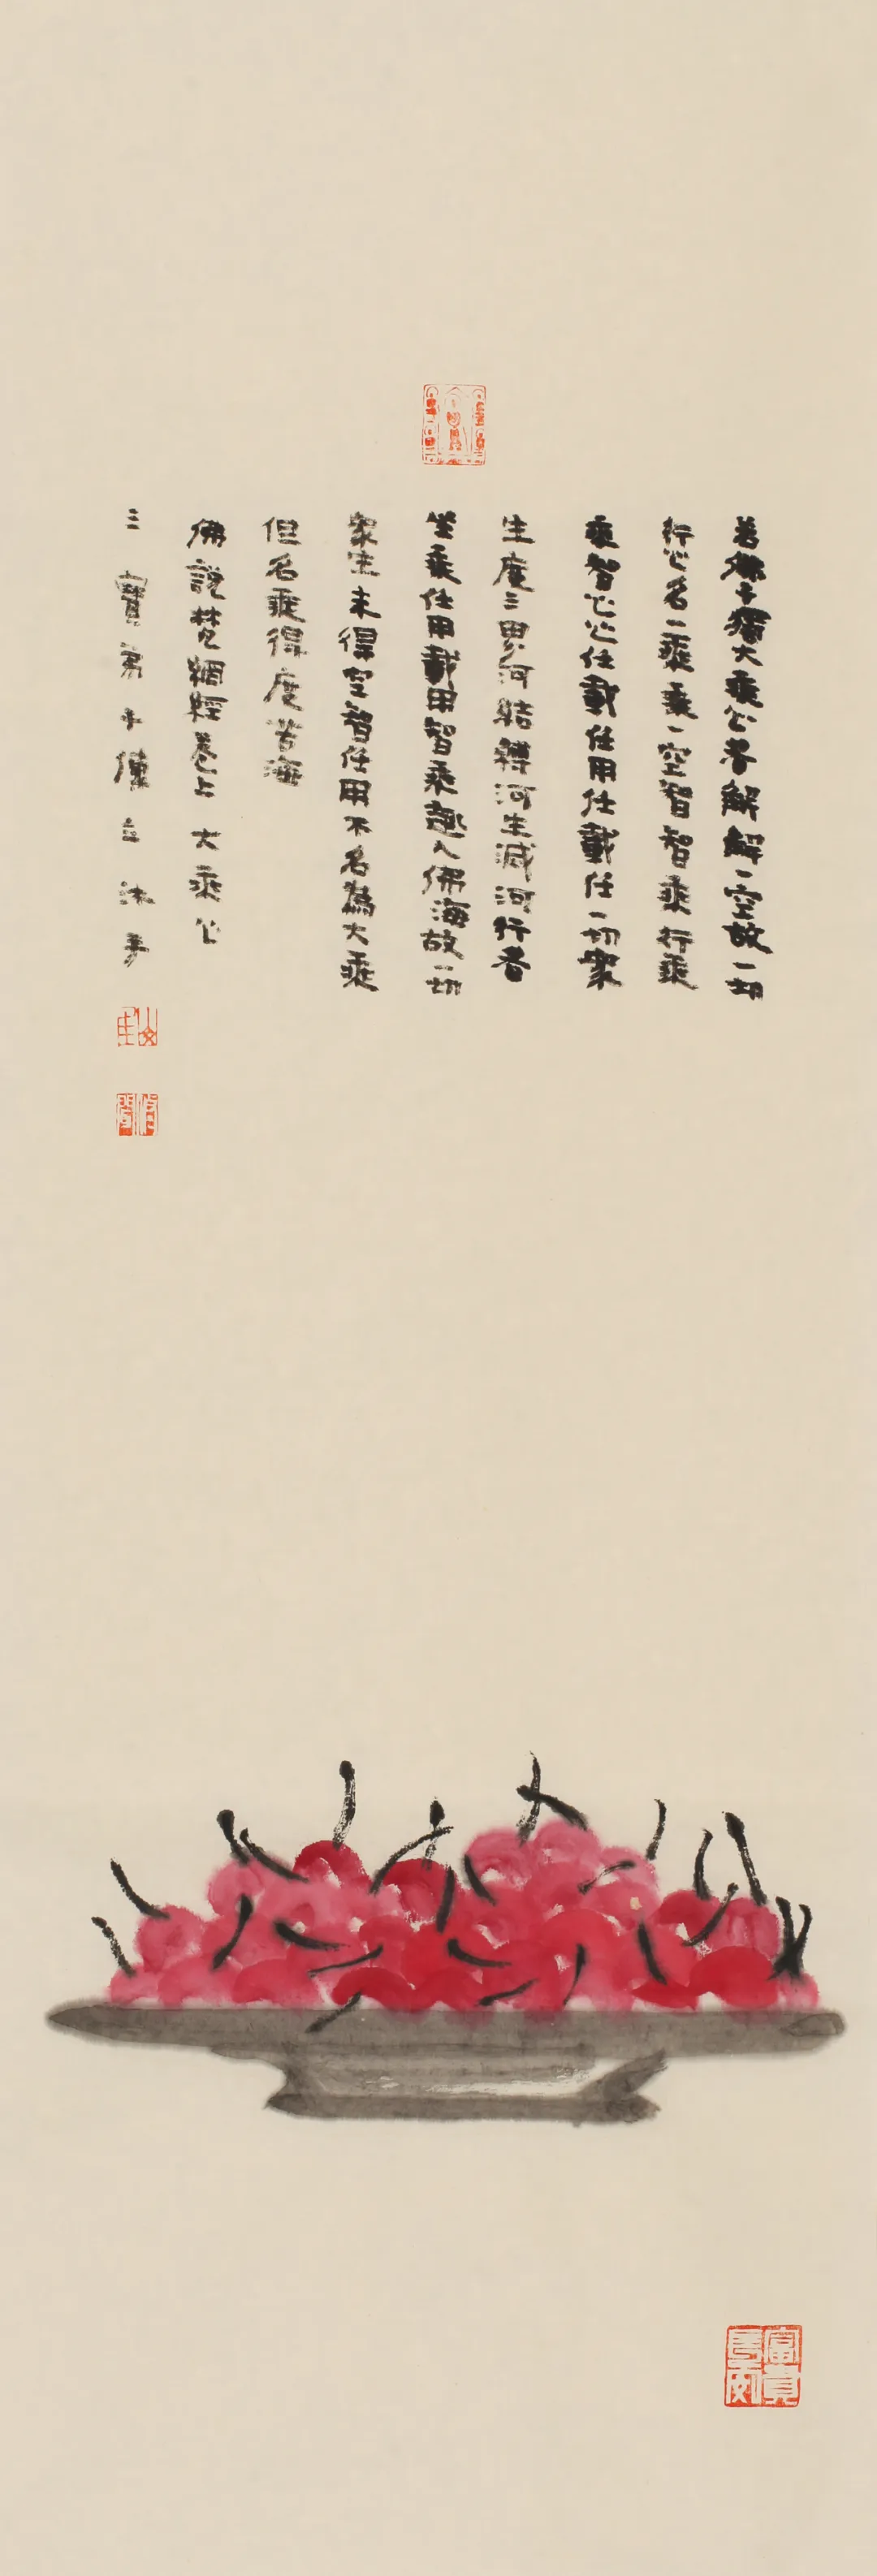 若佛子獨大乘心者解解一空故一切
行心名一乘乘一空智智乘行乘
乘智心心任載任用任載任一切眾
生度三界河結縛河生滅河行者
坐乘任用載用智乘趣入佛海故一切
眾生未得空智任用不名為大乘
但名乘得度苦海
佛說梵網經卷上 大乘心
三寶弟子 立沐手